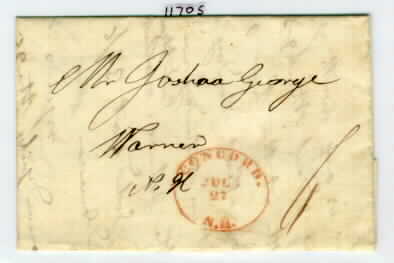 11705
Mr Joshua George
Warner
N. H
CONCORD.
JUL
27
N.H.
6